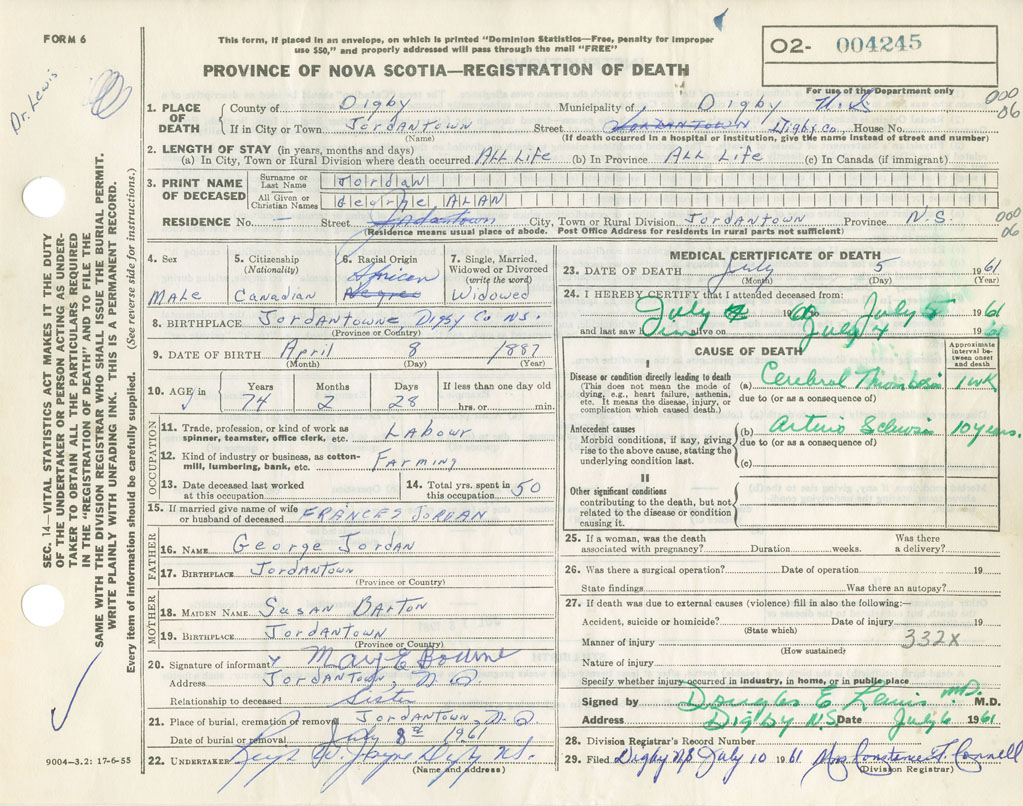 FORM 6
This form, if placed in an envelope, on which is printed "Dominion Statistics—Free, penalty for improper
use $50," and properly addressed will pass through the mail "FREE"
PROVINCE OF NOVA SCOTIA—REGISTRATION OF DEATH
02- 004245
For use of the Department only
Dr. Lewis
000
06
SEC. 14—VITAL STATISTICS ACT MAKES IT THE DUTY
OF THE UNDERTAKER OR PERSON ACTING AS UNDER-
TAKER TO OBTAIN ALL THE PARTICULARS REQUIRED
IN THE "REGISTRATION OF DEATH" AND TO FILE THE
SAME WITH THE DIVISION REGISTRAR WHO SHALL ISSUE THE BURIAL PERMIT.
WRITE PLAINLY WITH UNFADING INK. THIS IS A PERMANENT RECORD.
Every item of information should be carefully supplied. (See reverse side for instructions.)
1. PLACE OF DEATH County of Digby Municipality of Digby N.S
If in City or Town Jordantown Street Jordantown Digby Co. House No.
(Name) (If death occurred in a hospital or institution, give the name instead of street and number)
2. LENGTH OF STAY (in years, months and days)
(a) In City, Town or Rural Division where death occurred ALL Life (b) In Province ALL Life (c) In Canada (if immigrant)
3. PRINT NAME OF DECEASED Surname or Last Name Jordan
All Given or Christian Names George ALAN
RESIDENCE No. — Street Jordantown City, Town or Rural Division Jordantown Province N.S. 000
06
(Residence means usual place of abode. Post Office Address for residents in rural parts not sufficient)
4. Sex
MaLe
5. Citizenship
(Nationality)
Canadian
6. Racial Origin
African
Negroe
7. Single, Married,
Widowed or Divorced
(write the word)
Widowed
8. BIRTHPLACE Jordantowne Digby Co NS.
(Province or Country)
9. DATE OF BIRTH April 8 1887
(Month) (Day) (Year)
10. AGE in Years Months Days If less than one day old
74 2 28 hrs. or min.
OCCUPATION
11. Trade, profession, or kind of work as
spinner, teamster, office clerk, etc. Labour
12. Kind of industry or business, as cotton-
mill, lumbering, bank, etc. Farming
13. Date deceased last worked
at this occupation
14. Total yrs. spent in
this occupation 50
15. If married give name of wife
or husband of deceased FRANCES JORDAN
FATHER
16. NAME George Jordan
17. BIRTHPLACE Jordantown
(Province or Country)
MOTHER
18. MAIDEN NAME Susan Barton
19. BIRTHPLACE Jordantown
(Province or Country)
20. Signature of informant May E Bourne
Address Jordantown, N.S.
Relationship to deceased Sister
21. Place of burial, cremation or removal Jordantown, N.S.
Date of burial or removal July 8th 1961
22. UNDERTAKER
(Name and address)
9004-3.2: 17-6-55
MEDICAL CERTIFICATE OF DEATH
23. DATE OF DEATH July 5 1961
(Month) (Day) (Year)
24. I HEREBY CERTIFY that I attended deceased from:
July 1960 to July 5 1961
and last saw him alive on July 4 1961
CAUSE OF DEATH
Approximate
interval be-
tween onset
and death
I
Disease or condition directly leading to death
(This does not mean the mode of
dying, e.g., heart failure, asthenia,
etc. It means the disease, injury, or
complication which caused death.)
(a) Cerebral Thrombosis 1 wk
due to (or as a consequence of)
Antecedent causes
Morbid conditions, if any, giving
rise to the above cause, stating the
underlying condition last.
(b) Arterio Sclerosis 10 years.
due to (or as a consequence of)
(c)
II
Other significant conditions
contributing to the death, but not
related to the disease or condition
causing it.
25. If a woman, was the death
associated with pregnancy? Duration weeks. Was there
a delivery?
26. Was there a surgical operation? Date of operation 19
State findings Was there an autopsy?
27. If death was due to external causes (violence) fill in also the following:—
Accident, suicide or homicide? Date of injury 19
(State which)
Manner of injury 332X
(How sustained)
Nature of injury
Specify whether injury occurred in industry, in home, or in public place
Signed by Douglas E Lewis M.D. M.D.
Address Digby N.S Date July 6 1961
28. Division Registrar's Record Number
29. Filed Digby NS July 10 1961 Mrs Constance F. Connell
(Division Registrar)